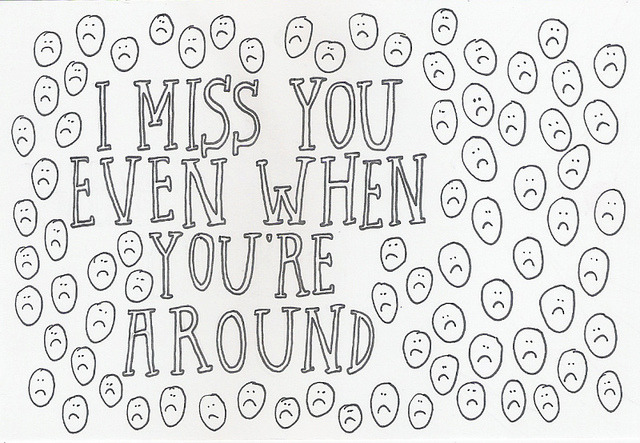 I MISS YOU
EVEN WHEN
YOU'RE
AROUND